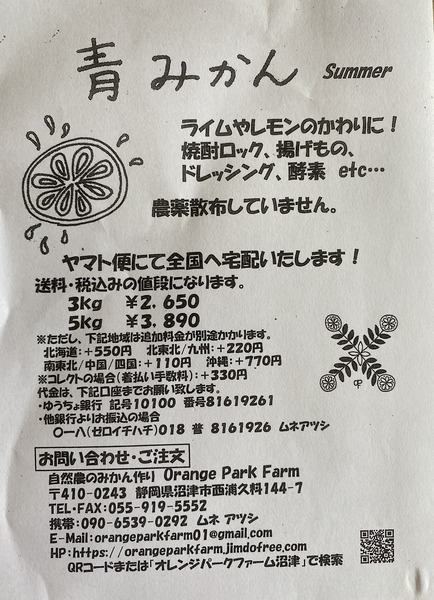 青みかん Summer
ライムやレモンのかわりに！
焼酎ロック、揚げもの、
ドレッシング、酵素 etc…
農薬散布していません。
ヤマト便にて全国へ宅配いたします！
送料・税込みの値段になります。
3kg ￥2.650
5kg ￥3.890
※ただし、下記地域は追加料金が別途かかります。
北海道：+550円 北東北/九州：+220円
南東北/中国/四国：+110円 沖縄：+770円
※コレクトの場合（着払い手数料）：+330円
代金は、下記口座までお願い致します。
・ゆうちょ銀行 記号10100 番号81619261
・他銀行よりお振込の場合
〇一八（ゼロイチハチ）018 普 8161926 ムネアツシ
お問い合わせ・ご注文
自然農のみかん作り Orange Park Farm
〒410-0243 静岡県沼津市西浦久料144-7
TEL・FAX：055-919-5552
携帯：090-6539-0292 ムネ アツシ
E-Mail：orangeparkfarm01@gmail.com
HP：https://orangeparkfarm.jimdofree.com
QRコードまたは「オレンジパークファーム沼津」で検索